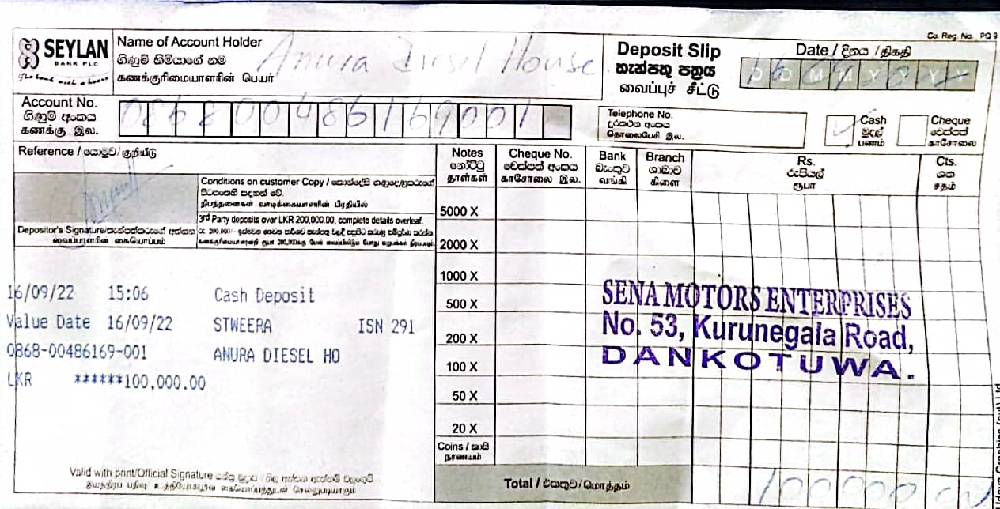 Co. Reg. No. PQ 9
SEYLAN
BANK PLC
Name of Account Holder
ගිණුම් හිමියාගේ නම
கணக்குரிமையாளரின் பெயர்
Anura Diesel House
Deposit Slip
තැන්පතු පත්‍රය
வைப்புச் சீட்டு
Date / දිනය / திகதி
Account No.
ගිණුම් අංකය
கணக்கு இல.
0868 00486169001
Telephone No.
දුරකථන අංකය
தொலைபேசி இல.
Cash
මුදල්
பணம்
Cheque
චෙක්පත්
காசோலை
Reference / යොමුව / குறியீடு
Conditions on customer Copy /
3rd Party deposits over LKR 200,000.00, complete details overleaf.
Depositor's Signature
Notes
නෝට්ටු
தாள்கள்
Cheque No.
චෙක්පත් අංකය
காசோலை இல.
Bank
බැංකුව
வங்கி
Branch
ශාඛාව
கிளை
Rs.
රුපියල්
ரூபா
Cts.
ශත
சதம்
5000 X
2000 X
1000 X
500 X
200 X
100 X
50 X
20 X
Coins / කාසි
நாணயம்
16/09/22 15:06 Cash Deposit
Value Date 16/09/22 STWEERA ISN 291
0868-00486169-001 ANURA DIESEL HO
LKR ******100,000.00
SENA MOTORS ENTERPRISES
No. 53, Kurunegala Road,
DANKOTUWA.
Valid with print/Official Signature
Total / එකතුව / மொத்தம்
100000